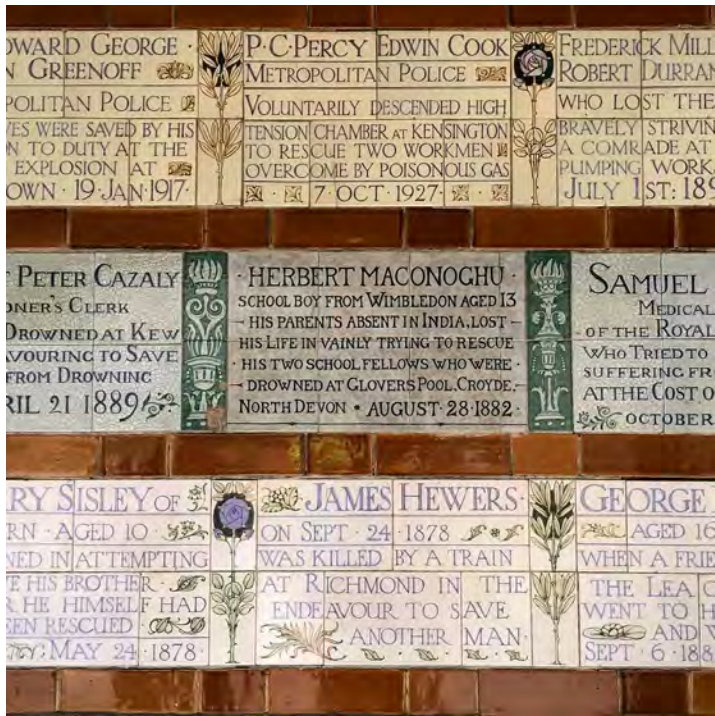 DWARD GEORGE ·
N GREENOFF
POLITAN POLICE
VES WERE SAVED BY HIS
ON TO DUTY AT THE
EXPLOSION AT
OWN · 19 · JAN · 1917 ·
P · C · PERCY EDWIN COOK
METROPOLITAN POLICE
VOLUNTARILY DESCENDED HIGH
TENSION CHAMBER AT KENSINGTON
TO RESCUE TWO WORKMEN
OVERCOME BY POISONOUS GAS
· 7 OCT · 1927 ·
FREDERICK MILL
ROBERT DURRAN
WHO LOST THE
BRAVELY STRIVIN
A COMRADE AT
PUMPING WORK
JULY 1ST: 189
PETER CAZALY
ONER'S CLERK
DROWNED AT KEW
AVOURING TO SAVE
FROM DROWNING
RIL 21 1889
· HERBERT MACONOGHU ·
SCHOOL BOY FROM WIMBLEDON AGED 13
HIS PARENTS ABSENT IN INDIA, LOST
HIS LIFE IN VAINLY TRYING TO RESCUE
· HIS TWO SCHOOL FELLOWS WHO WERE
DROWNED AT GLOVERS POOL, CROYDE,
NORTH DEVON · AUGUST · 28 · 1882 ·
SAMUEL
MEDICAL
OF THE ROYAL
WHO TRIED TO
SUFFERING FR
AT THE COST O
OCTOBER
RY SISLEY OF
RN · AGED 10
NED IN ATTEMPTING
E HIS BROTHER ·
R HE HIMSELF HAD
EEN RESCUED
MAY 24 · 1878 ·
JAMES HEWERS ·
ON SEPT · 24 · 1878
WAS KILLED BY A TRAIN
AT RICHMOND IN THE
ENDEAVOUR TO SAVE
ANOTHER MAN ·
GEORGE
AGED 16
WHEN A FRIE
THE LEA
WENT TO H
AND
SEPT · 6 · 188